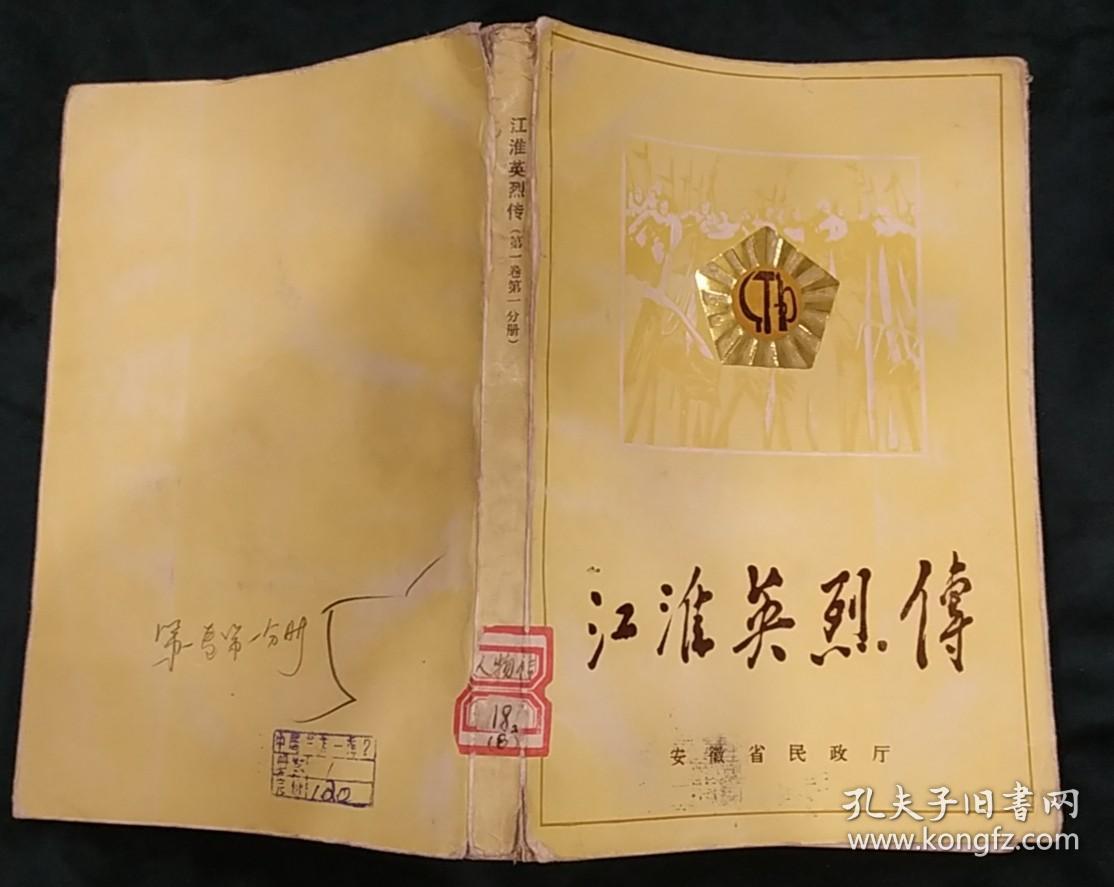 江淮英烈传（第一卷第一分册）
江淮英烈傳
安徽省民政厅
人物传
18
(B)
第一卷第一分册
120
孔夫子旧書网
www.kongfz.com